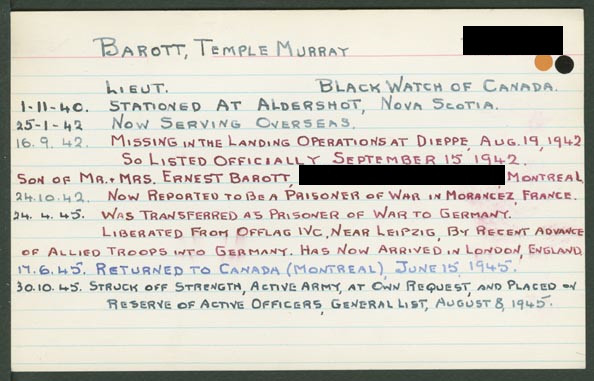 BAROTT, TEMPLE MURRAY
LIEUT. BLACK WATCH OF CANADA.
1-11-40. STATIONED AT ALDERSHOT, NOVA SCOTIA.
25-1-42 NOW SERVING OVERSEAS.
16.9.42. MISSING IN THE LANDING OPERATIONS AT DIEPPE, AUG. 19, 1942
SO LISTED OFFICIALLY SEPTEMBER 15 1942.
SON OF MR. & MRS. ERNEST BAROTT, MONTREAL
24.10.42. NOW REPORTED TO BE A PRISONER OF WAR IN MORANCEZ, FRANCE.
24.4.45. WAS TRANSFERRED AS PRISONER OF WAR TO GERMANY.
LIBERATED FROM OFFLAG IVC, NEAR LEIPZIG, BY RECENT ADVANCE
OF ALLIED TROOPS INTO GERMANY. HAS NOW ARRIVED IN LONDON, ENGLAND
17.6.45. RETURNED TO CANADA (MONTREAL), JUNE 15, 1945.
30.10.45. STRUCK OFF STRENGTH, ACTIVE ARMY, AT OWN REQUEST, AND PLACED ON
RESERVE OF ACTIVE OFFICERS, GENERAL LIST, AUGUST 8, 1945.